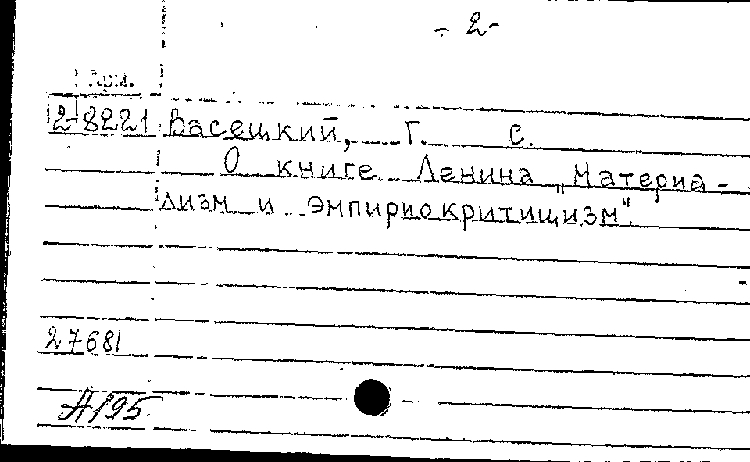 - 2 -
2-8221 Васецкий, Г. С.
О книге Ленина „Материа-
лизм и эмпириокритицизм".
27681
A195